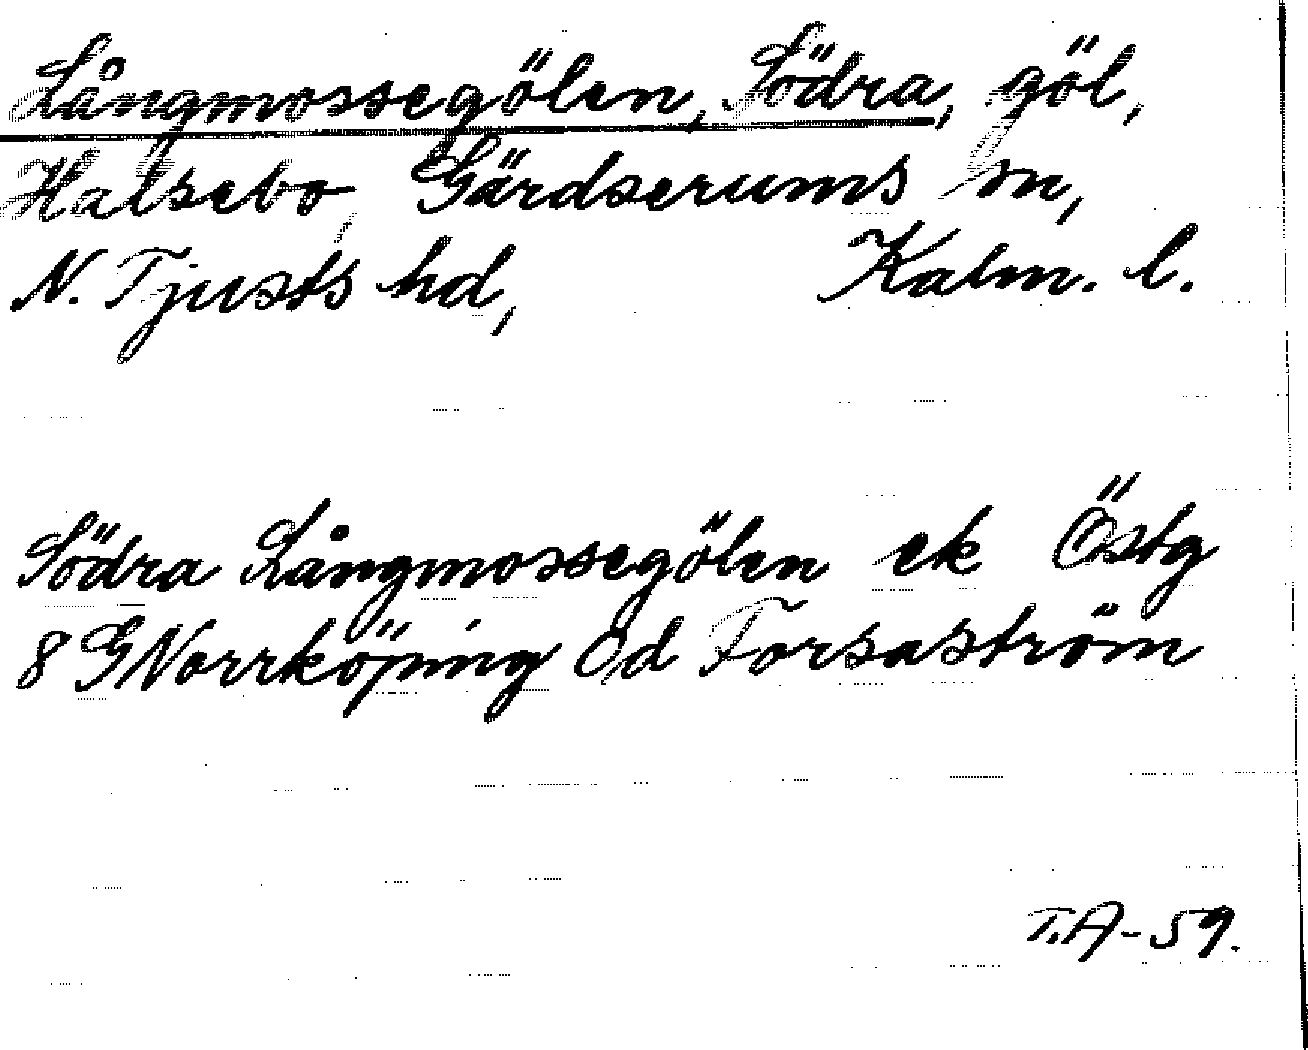 Långmossegölen, Södra, göl,
Halsebo, Gärdserums sn,
N. Tjusts hd, Kalm. l.
Södra Långmossegölen ek Östg
8 GNorrköping Öd Forsaström
T.A-59.